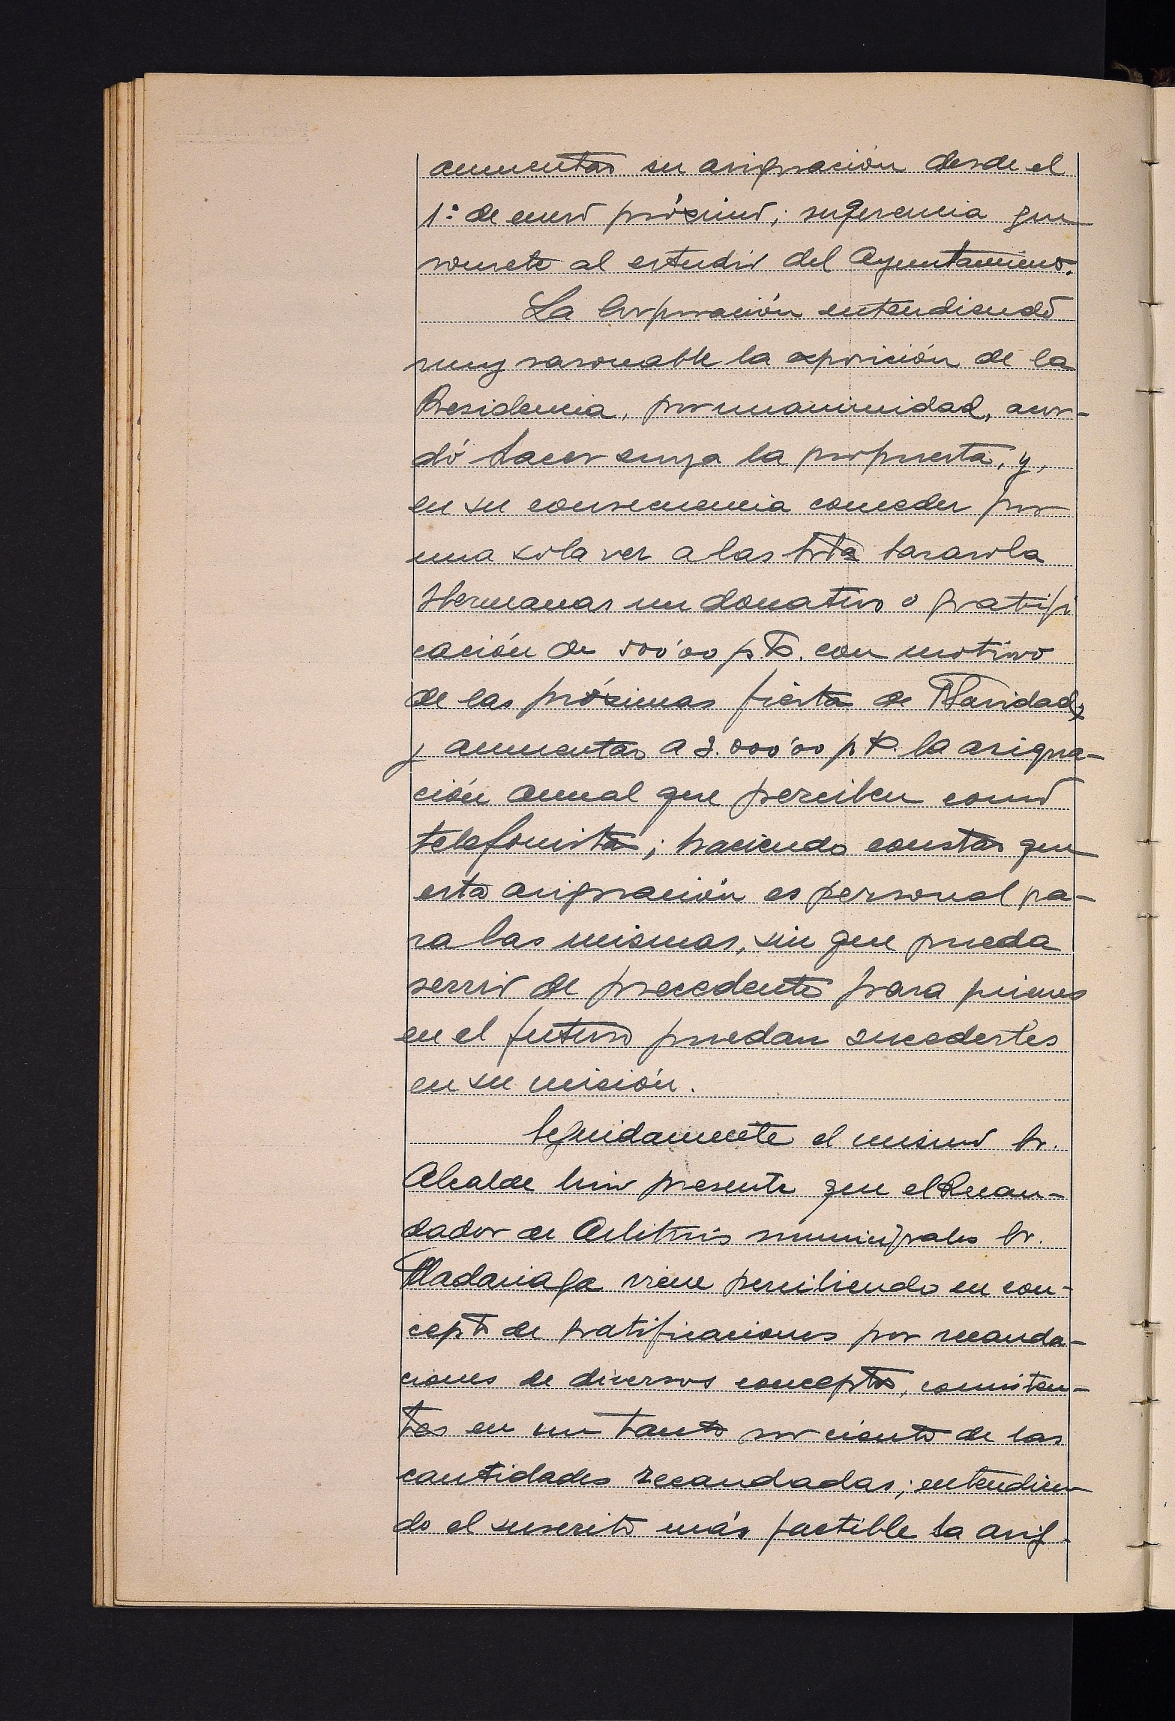 aumentar su asignación desde el
1º de enero próximo; sugerencia que
somete al estudio del Ayuntamiento.
La Corporación entendiendo
muy razonable la exposición de la
Presidencia, por unanimidad, acor-
dó hacer suya la propuesta, y,
en su consecuencia conceder por
una sola vez a las
Hermanas un donativo o gratifi
cación de 500'00 pts. con motivo
de las próximas fiestas de Navidad,
y aumentar a 2.000'00 pts. la asigna-
ción anual que perciben como
telefonistas; haciendo constar que
esta asignación es personal pa-
ra las mismas, sin que pueda
servir de precedente para quienes
en el futuro puedan sucederles
en su misión.
Seguidamente el mismo Sr.
Alcalde hizo presente que el Recau-
dador de Arbitrios municipales Sr.
Madariaga viene percibiendo en con-
cepto de gratificaciones por recauda-
ciones de diversos conceptos, consisten-
tes en un tanto por ciento de las
cantidades recaudadas; entendien
do el suscrito más factible la asig-